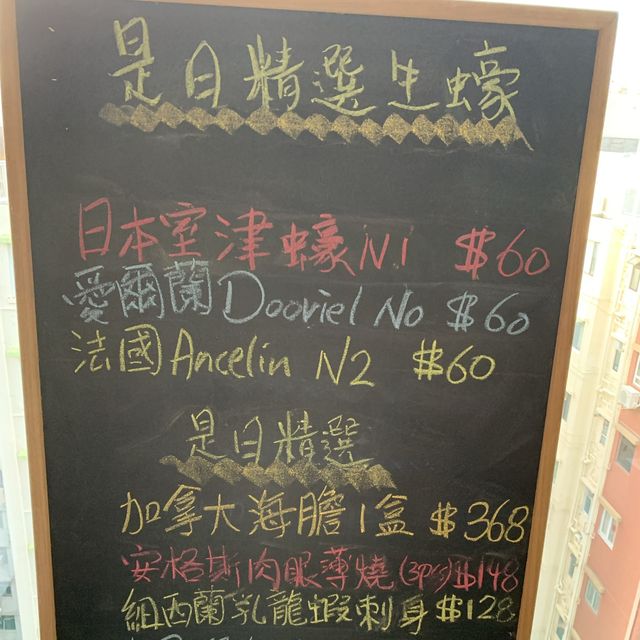 是日精選生蠔
日本室津蠔N1 $60
愛爾蘭Dooriel No $60
法國Ancelin N2 $60
是日精選
加拿大海膽1盒 $368
安格斯肉眼薄燒(3pcs)$148
紐西蘭乳龍蝦刺身$128